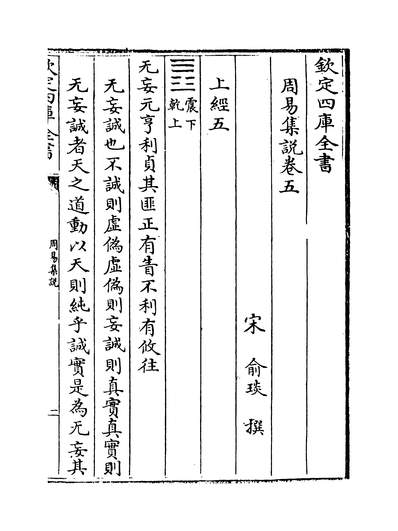 欽定四庫全書
周易集說卷五
宋 俞琰 撰
上經五
震下
乾上
无妄元亨利貞其匪正有眚不利有攸往
无妄誠也不誠則虛偽虛偽則妄誠則真實真實則
无妄誠者天之道動以天則純乎誠實是為无妄其
欽定四庫全書
周易集說
二